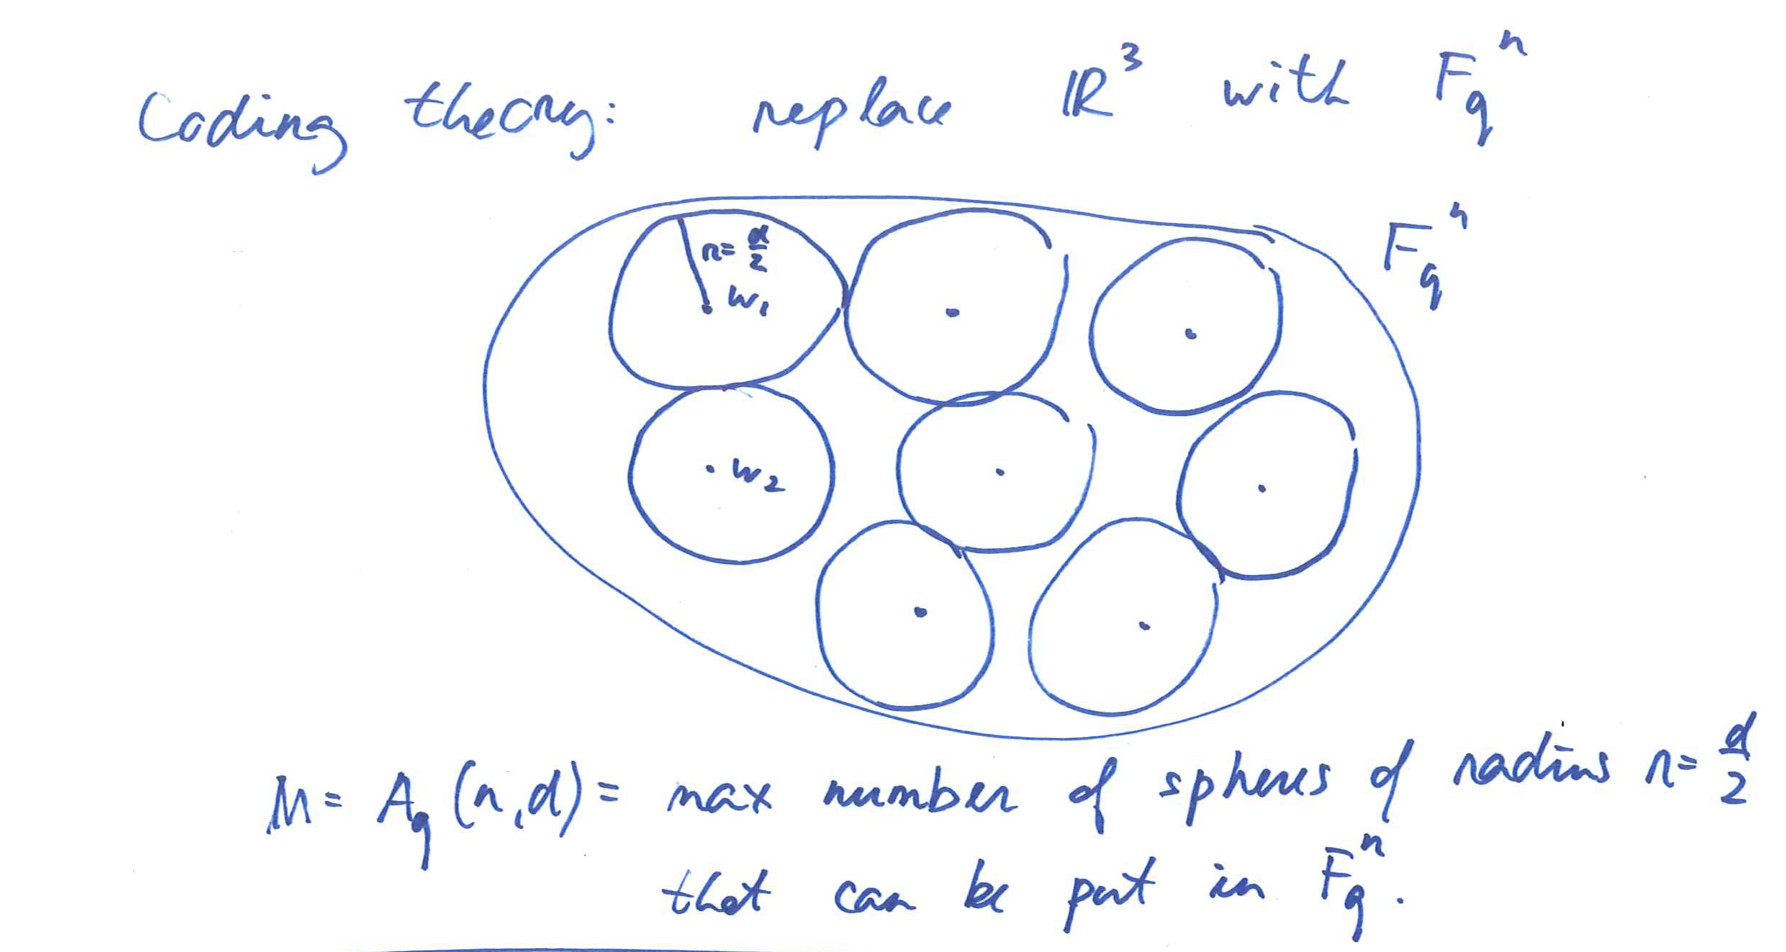 Coding theory: replace ℝ³ with F_q^n
F_q^n
r = d/2
w₁
w₂
M = A_q (n,d) = max number of spheres of radius r = d/2
that can be put in F_q^n.